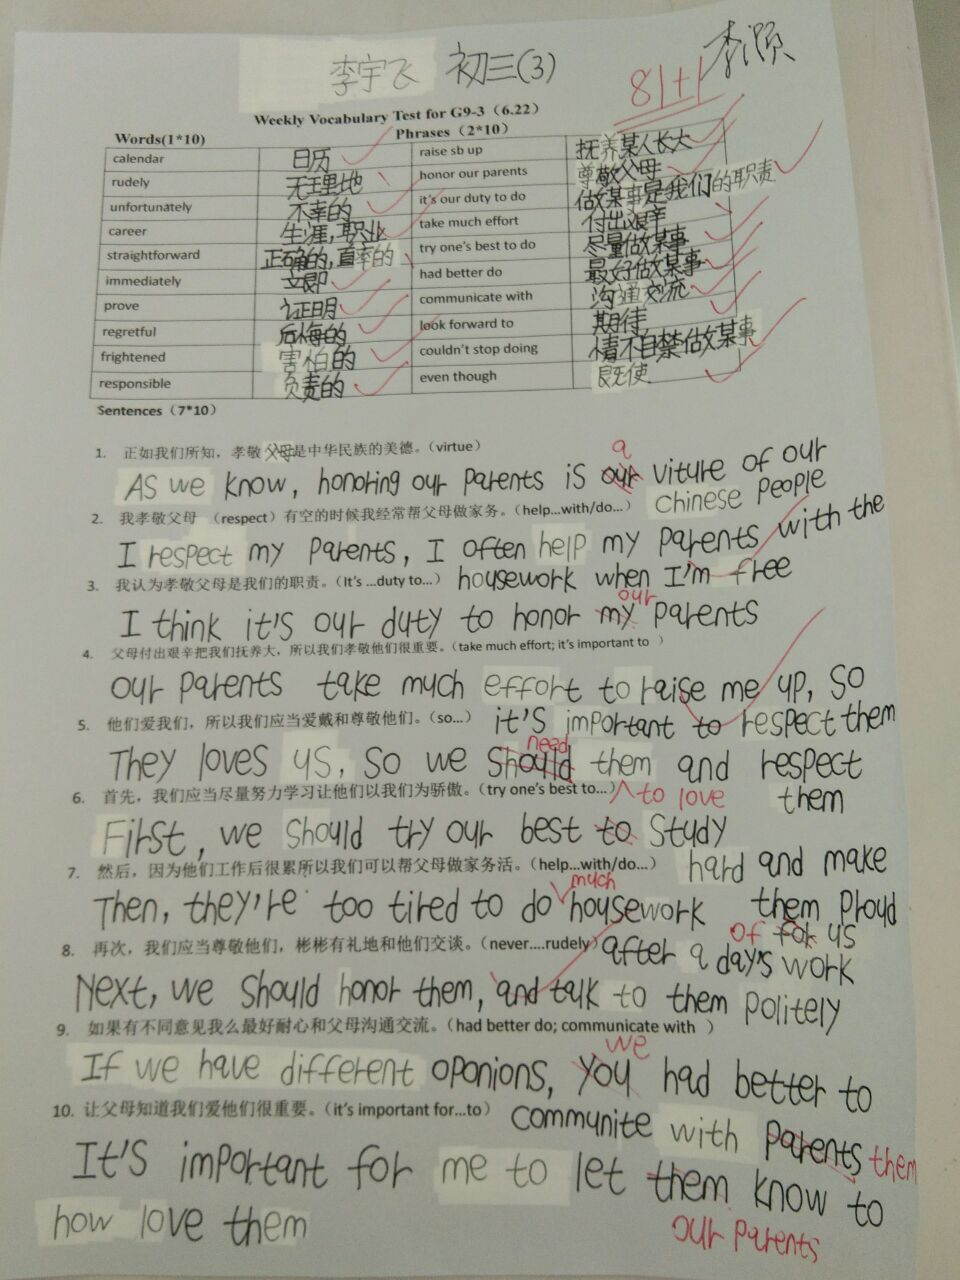 李宇飞 初三(3) 李灏
81+1
Weekly Vocabulary Test for G9-3（6.22）
Words(1*10) Phrases（2*10）
calendar 日历 raise sb up 抚养某人长大
rudely 无理地 honor our parents 尊敬父母
unfortunately 不幸的 it's our duty to do 做某事是我们的职责
career 生涯,职业 take much effort 付出艰辛
straightforward 正确的,直率的 try one's best to do 尽量做某事
immediately 立即 had better do 最好做某事
prove 证明 communicate with 沟通交流
regretful 后悔的 look forward to 期待
frightened 害怕的 couldn't stop doing 情不自禁做某事
responsible 负责的 even though 既使
Sentences（7*10）
1. 正如我们所知，孝敬父母是中华民族的美德。（virtue）
a
As we know, honoring our parents is our viture of our
chinese people
2. 我孝敬父母 （respect）有空的时候我经常帮父母做家务。（help...with/do...）
I respect my parents, I often help my parents with the
housework when I'm free
3. 我认为孝敬父母是我们的职责。（It's ...duty to...）
our
I think it's our duty to honor my parents
4. 父母付出艰辛把我们抚养大，所以我们孝敬他们很重要。（take much effort; it's important to ）
our parents take much effort to raise me up, so
it's important to respect them
5. 他们爱我们，所以我们应当爱戴和尊敬他们。（so...）
need
They loves us, so we should them and respect
them
to love
6. 首先，我们应当尽量努力学习让他们以我们为骄傲。（try one's best to...）
First, we should try our best to study
hard and make
them proud
of for us
7. 然后，因为他们工作后很累所以我们可以帮父母做家务活。（help...with/do...）
much
Then, they're too tired to do housework
after a day's work
8. 再次，我们应当尊敬他们，彬彬有礼地和他们交谈。（never....rudely）
Next, we should honor them, and talk to them politely
9. 如果有不同意见我么最好耐心和父母沟通交流。（had better do; communicate with ）
we
If we have different oponions, you had better to
communite with parents them
10. 让父母知道我们爱他们很重要。（it's important for...to）
It's important for me to let them know to
our parents
how love them